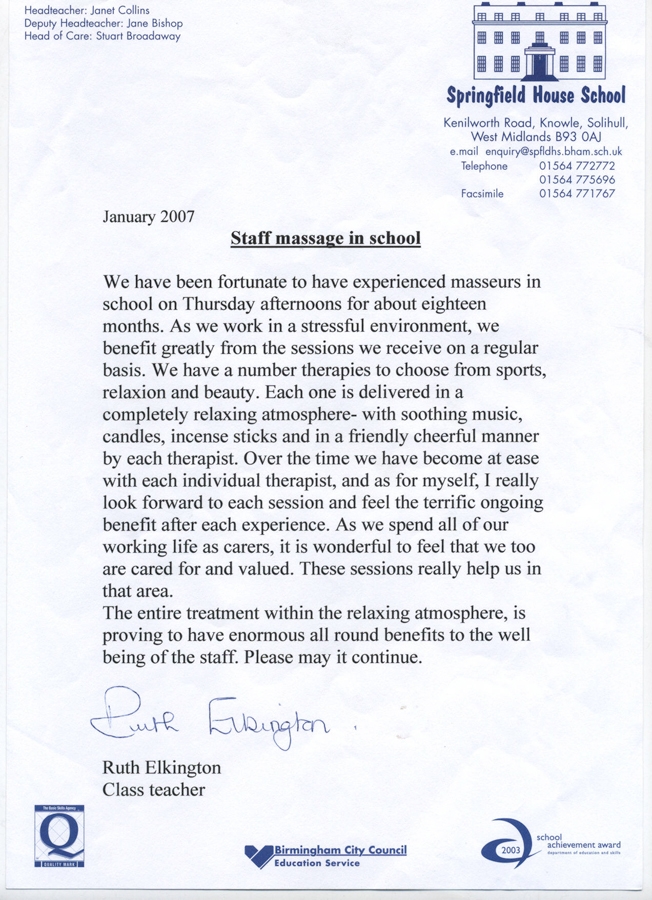 Headteacher: Janet Collins
Deputy Headteacher: Jane Bishop
Head of Care: Stuart Broadaway
Springfield House School
Kenilworth Road, Knowle, Solihull,
West Midlands B93 0AJ
e.mail enquiry@spfldhs.bham.sch.uk
Telephone 01564 772772
01564 775696
Facsimile 01564 771767
January 2007
Staff massage in school
We have been fortunate to have experienced masseurs in
school on Thursday afternoons for about eighteen
months. As we work in a stressful environment, we
benefit greatly from the sessions we receive on a regular
basis. We have a number therapies to choose from sports,
relaxion and beauty. Each one is delivered in a
completely relaxing atmosphere- with soothing music,
candles, incense sticks and in a friendly cheerful manner
by each therapist. Over the time we have become at ease
with each individual therapist, and as for myself, I really
look forward to each session and feel the terrific ongoing
benefit after each experience. As we spend all of our
working life as carers, it is wonderful to feel that we too
are cared for and valued. These sessions really help us in
that area.
The entire treatment within the relaxing atmosphere, is
proving to have enormous all round benefits to the well
being of the staff. Please may it continue.
Ruth Elkington.
Ruth Elkington
Class teacher
The Basic Skills Agency
Q
QUALITY MARK
Birmingham City Council
Education Service
2003
school
achievement award
department of education and skills